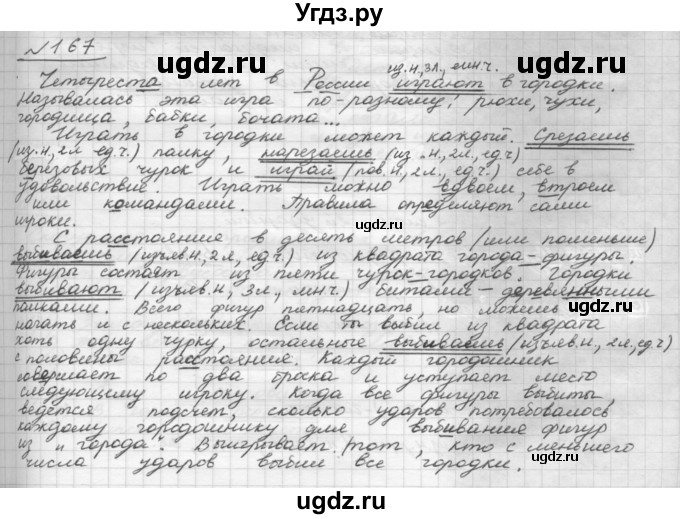 Угдз.ру
№167
из.н., 3л., мн.ч.
Четыреста лет в России играют в городки.
Называлась эта игра по-разному: рюхи, чухи,
городища, бабки, бочата...
Играть в городки может каждый. Срезаешь
(из.н., 2л. ед.ч.) палку, нарезаешь (из.н., 2л., ед.ч)
березовых чурок и играй (пов.н., 2л., ед.ч.) себе в
удовольствие. Играть можно вдвоем, втроем
или командами. Правила определяют сами
игроки.
С расстояния в десять метров (или поменьше)
выбиваешь (изъяв.н., 2л., ед.ч.) из квадрата города-фигуры.
Фигуры состоят из пяти чурок-городков. Городки
выбивают (изъяв.н., 3л., мн.ч.) битами - деревянными
палками. Всего фигур пятнадцать, но можешь
начать и с нескольких. Если ты выбил из квадрата
хоть одну чурку, остальные выбиваешь (изъяв.н., 2л., ед.ч)
с половины расстояния. Каждый городошник
совершает по два броска и уступает место
следующему игроку. Когда все фигуры выбиты,
ведётся подсчет, сколько ударов потребовалось
каждому городошнику для выбивания фигур
из "города". Выигрывает тот, кто с меньшего
числа ударов выбил все городки.
ugdz.ru
ugdz.ru
ugdz.ru
ugdz.ru
ugdz.ru
ugdz.ru
ugdz.ru
ugdz.ru
ugdz.ru
ugdz.ru
ugdz.ru